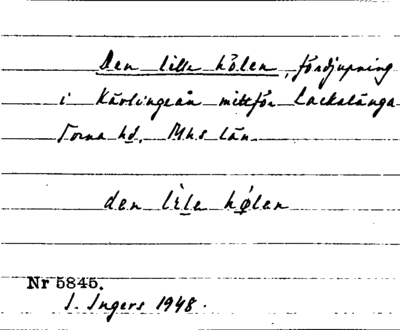 Den lille hölen, fördjupning
i Kävlingeån mittför Lackalänga
Torna hd. Mhs län
den lìle hølen
Nr 5845.
I. Ingers 1948.